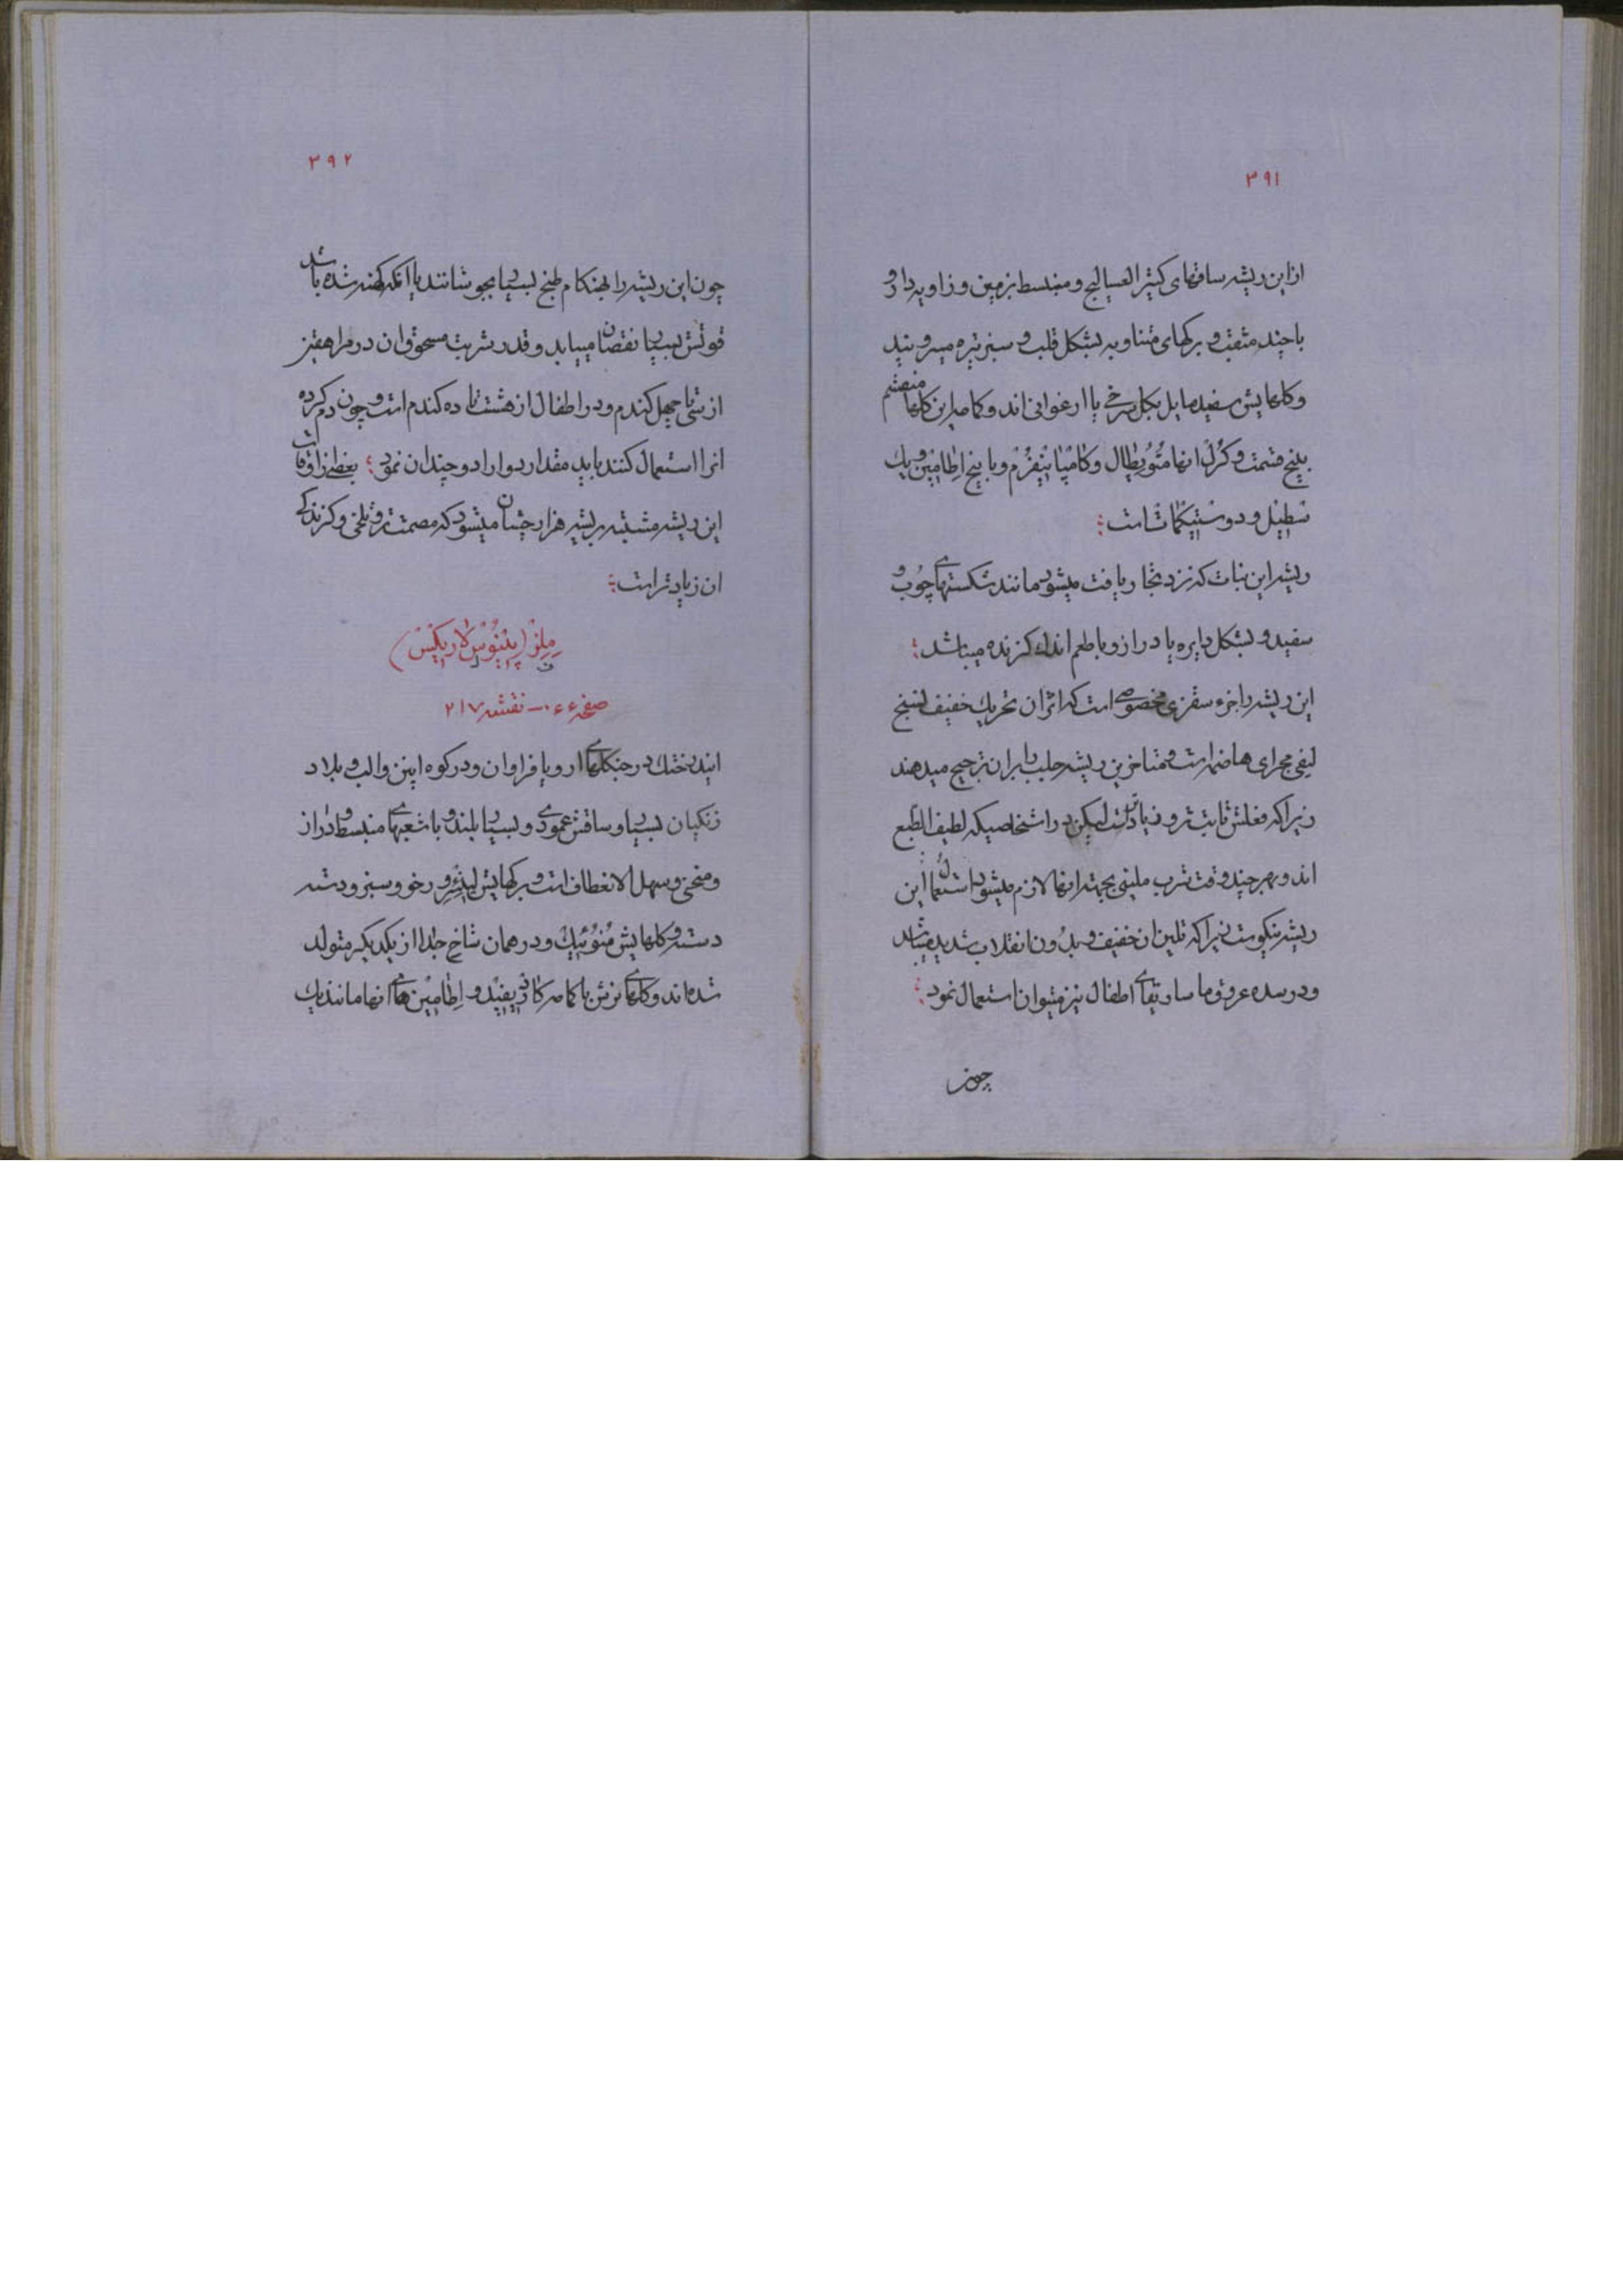 ۳۹۱
ازاین ریشه ساقهای کثیر العسالیج و منبسط بزمین و زاویه دار و
با چند مثقب و برکهای متناوبه بشکل قلب و سبز تیره میرویند
وکلهایش سفید مایل بکل سرخی یا ارغوانی اند وکاسه این کلها منقسم
بپنج قسمت و کرل انها منوپطال وکامپانیفرم وبا پنج اطامین و یک
سطیل و دو ستیکمات است
ریشه این نبات که نزد تجار یافت میشود مانند شکستهای چوب و
سفید و بشکل دایره یا دراز و با طعم اندک کزنده میباشد
این ریشه را جزء سقزی مخصوصی است که اثر ان تحریک خفیف نسج
لیفی مجرای هاضم است و متاخرین ریشه جلب را بران ترجیح میدهند
زیرا که فعلش ثابت تر و زیادتر است لیکن در اشخاصیکه لطیف الطبع
اند و بهر چند وقت شرب ملینی بجهته انها لازم میشود استعمال این
ریشه نیکوست زیرا که تلین ان خفیف و بدون انقلاب شدید میباشد
و در سده عروق ماساریقای اطفال نیز میتوان استعمال نمود
چون
۳۹۲
چون این ریشه را بهنکام طبخ بسیار بجوشانند یا انکه کهنه شده باشد
قوتش بسیار نقصان مییابد و قدر شربت مسحوق ان در مراهقین
از سی تا چهل کندم و در اطفال از هشت تا ده کندم است و چون دم کرده
انرا استعمال کنند باید مقدار دوا را دو چندان نمود بعضی از اوقات
این ریشه مشتبه بریشه هزار جشان میشود که مصمت تر و تلخی و کزندکی
ان زیادتر است
ملز (پینوس لاریکس)
ف پ ل
صفحه ۴۴۰ - نقشه ۲۱۷
ایندرختک در جنکلهای اروپا فراوان و در کوه اپنن والپ و بلاد
زنکیان بسیار و ساقش عمودی و بسیار بلند و با شعبهای منبسط و دراز
و منحنی و سهل الانعطاف است و برکهایش لینئر و رخو و سبز و دسته
دسته و کلهایش منوئیک و در همان شاخ جدا از یکدیکر متولد
شده اند وکلهای نرش با کاسه کادیفید و اطامین های انها مانند یک